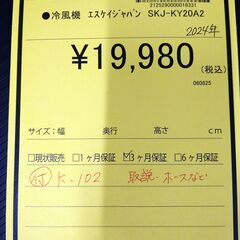 2125290000016331
●冷風機 エスケイジャパン SKJ-KY20A2
2024年
¥19,980
(税込)
060825
サイズ:幅 奥行 高さ cm
□現状販売 □1ヶ月保証 ☑3ヶ月保証 □6ヶ月保証
付 K-102 取説・ホースなど